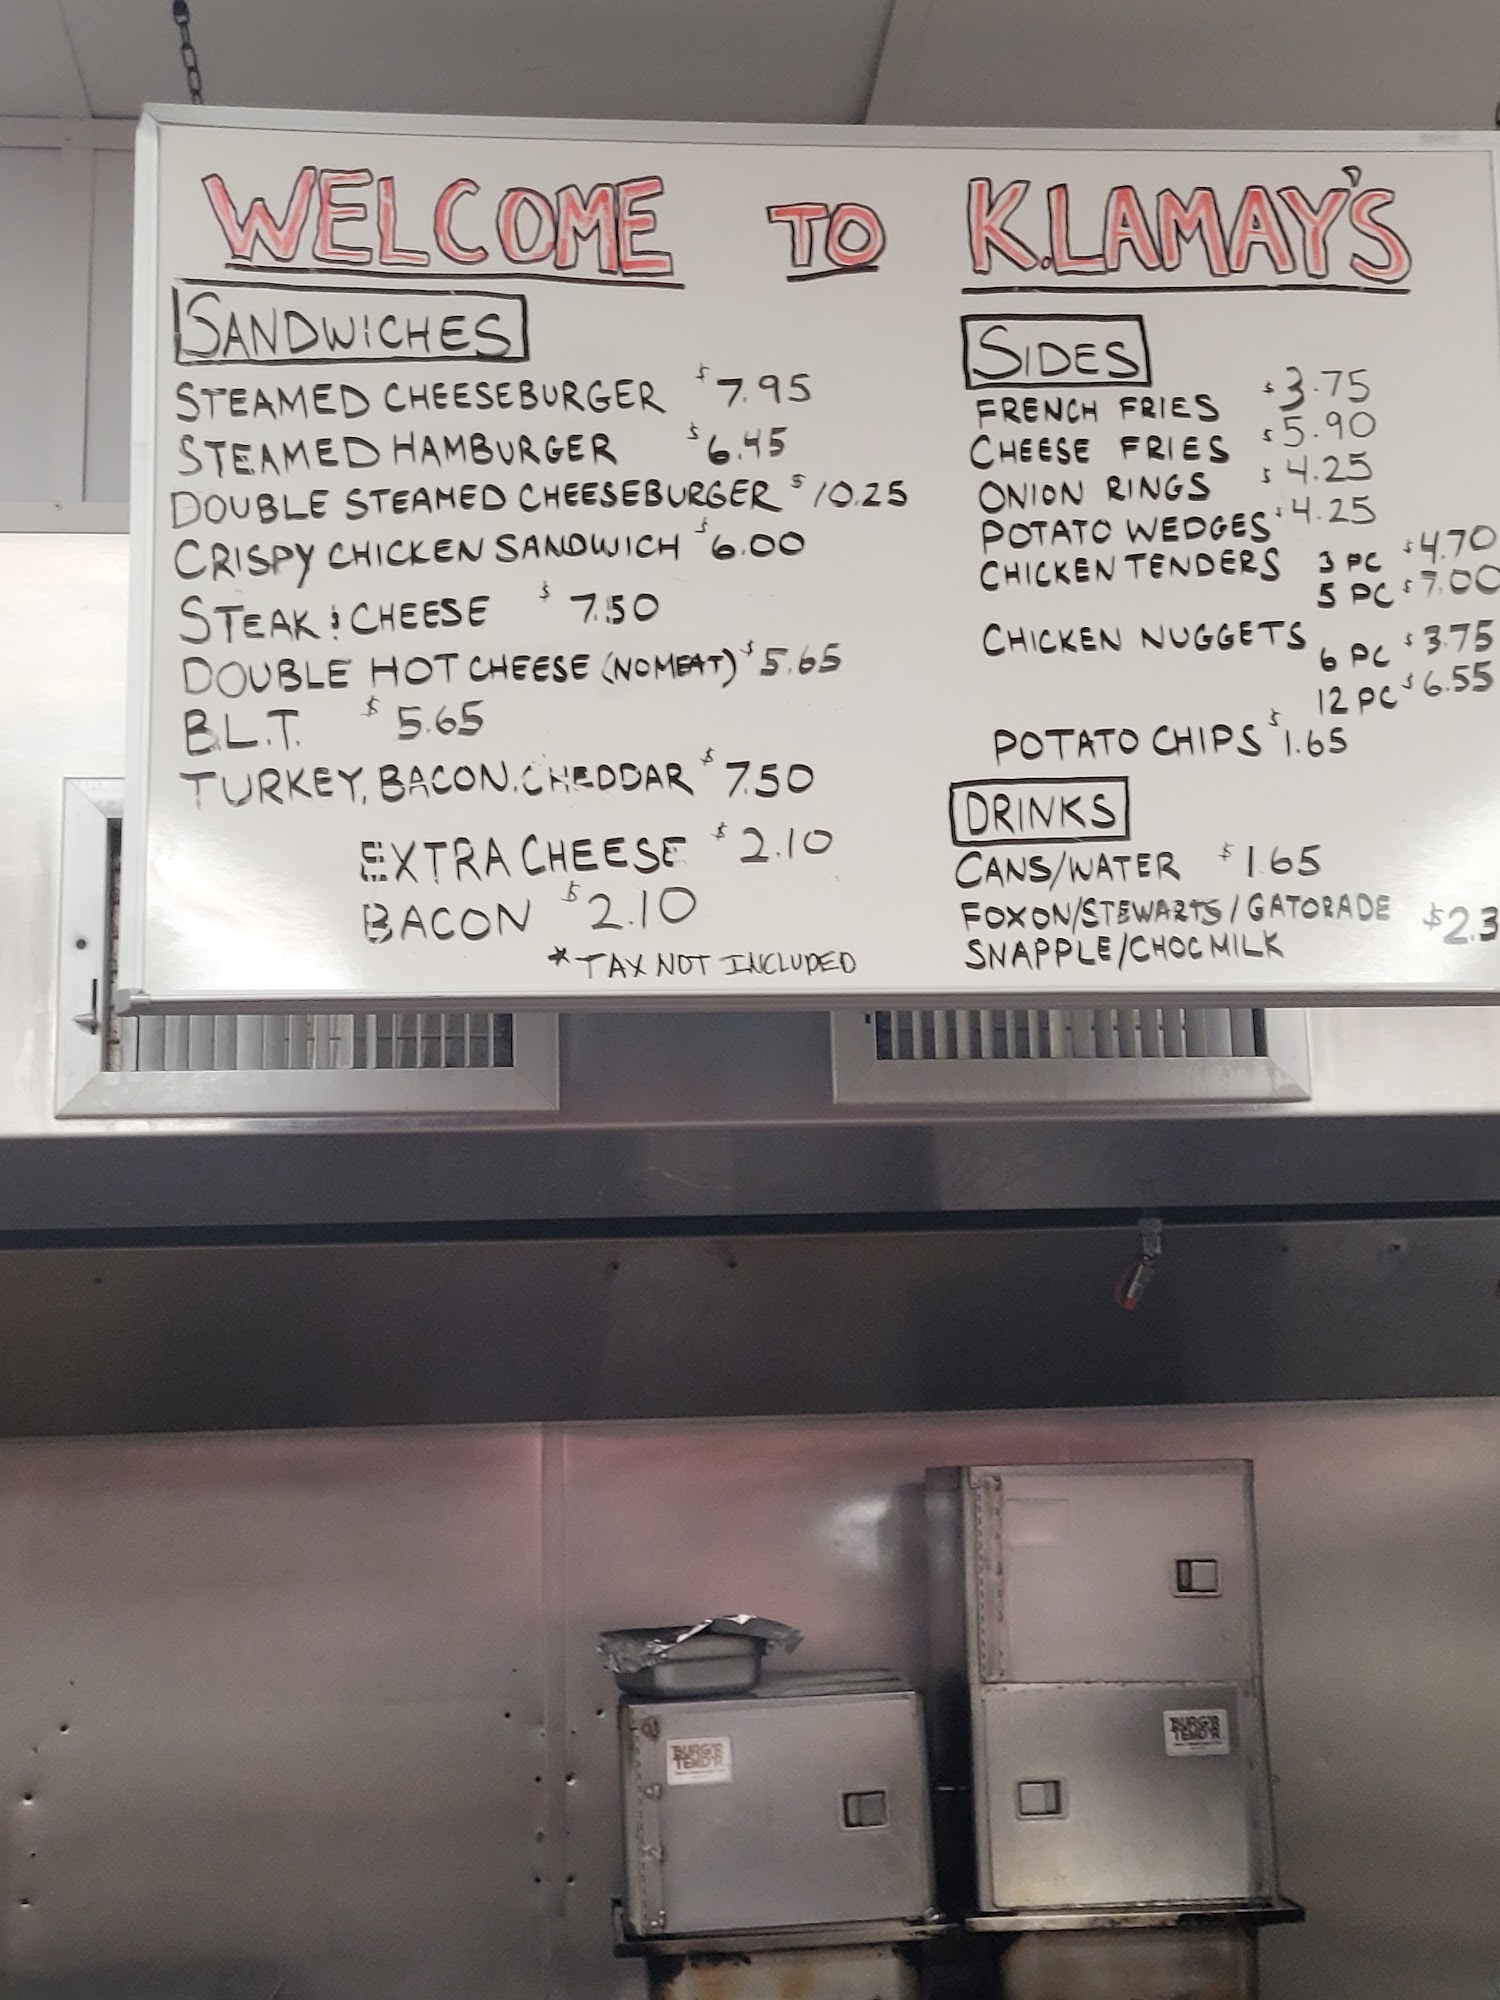 WELCOME TO K.LAMAY'S
SANDWICHES
STEAMED CHEESEBURGER $7.95
STEAMED HAMBURGER $6.45
DOUBLE STEAMED CHEESEBURGER $10.25
CRISPY CHICKEN SANDWICH $6.00
STEAK & CHEESE $7.50
DOUBLE HOT CHEESE (NO MEAT) $5.65
B.L.T. $5.65
TURKEY, BACON, CHEDDAR $7.50
EXTRA CHEESE $2.10
BACON $2.10
*TAX NOT INCLUDED
SIDES
FRENCH FRIES $3.75
CHEESE FRIES $5.90
ONION RINGS $4.25
POTATO WEDGES $4.25
CHICKEN TENDERS 3 PC $4.70
5 PC $7.00
CHICKEN NUGGETS 6 PC $3.75
12 PC $6.55
POTATO CHIPS $1.65
DRINKS
CANS/WATER $1.65
FOXON/STEWARTS/GATORADE $2.3
SNAPPLE/CHOC MILK
BURG'R
TEND'R
BURG'R
TEND'R